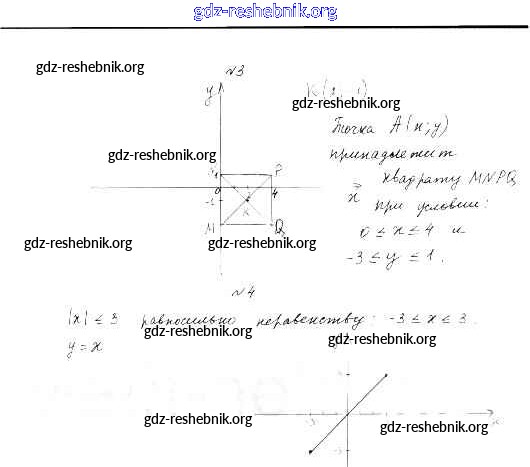 gdz-reshebnik.org
gdz-reshebnik.org
№3
y
gdz-reshebnik.org
Точка A(x;y)
gdz-reshebnik.org
принадлежит
1 P
квадрату MNPQ
0 4 x
при условии:
-1 K
0 ≤ x ≤ 4 и
M Q
gdz-reshebnik.org
gdz-reshebnik.org
-3 ≤ y ≤ 1.
№4
|x| ≤ 3 равносильно неравенству: -3 ≤ x ≤ 3.
gdz-reshebnik.org
gdz-reshebnik.org
y = x
gdz-reshebnik.org
-3
x
gdz-reshebnik.org